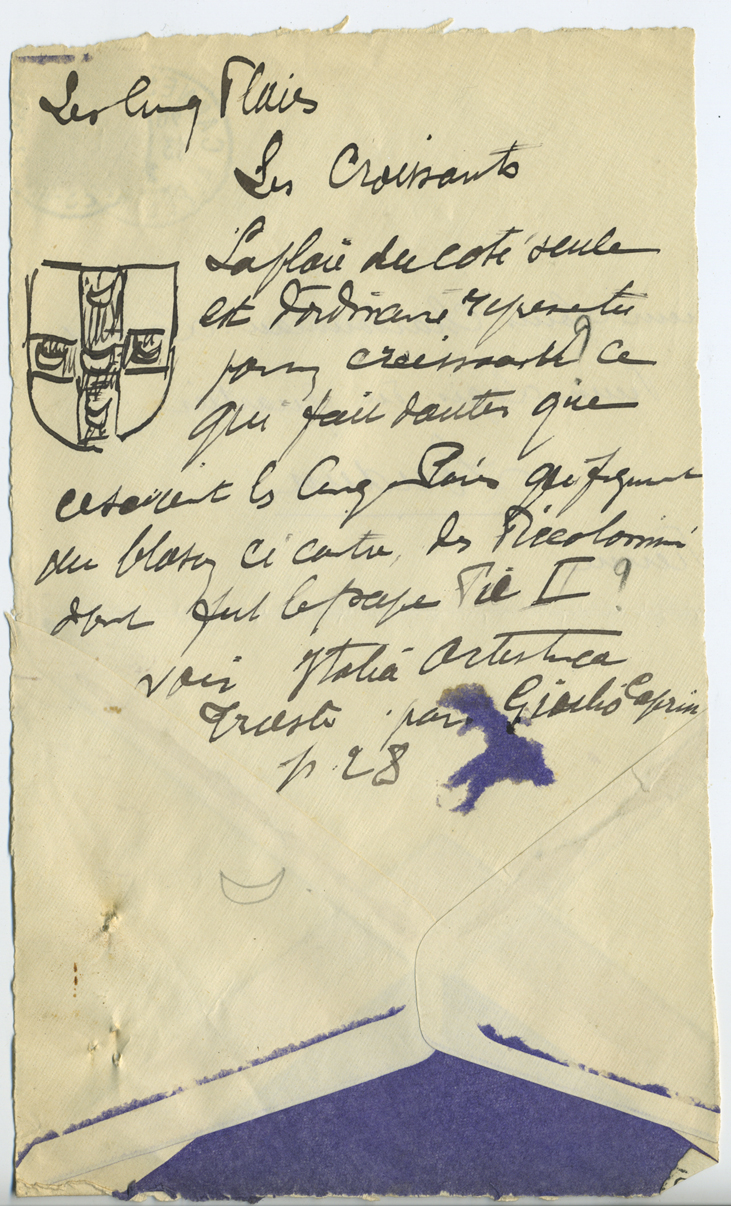 Les Cinq Plaies
Les Croissants
La plaie du coté seule
est d'ordinaire representée
par un croissant ? Ce
qui fait douter que
ce soient les Cinq Plaies qui figurent
au blason ci contre, des Piccolomini
dont fut le pape Pie II ?
voir Italia Artistica
Trieste par Giulio Caprin
p. 28